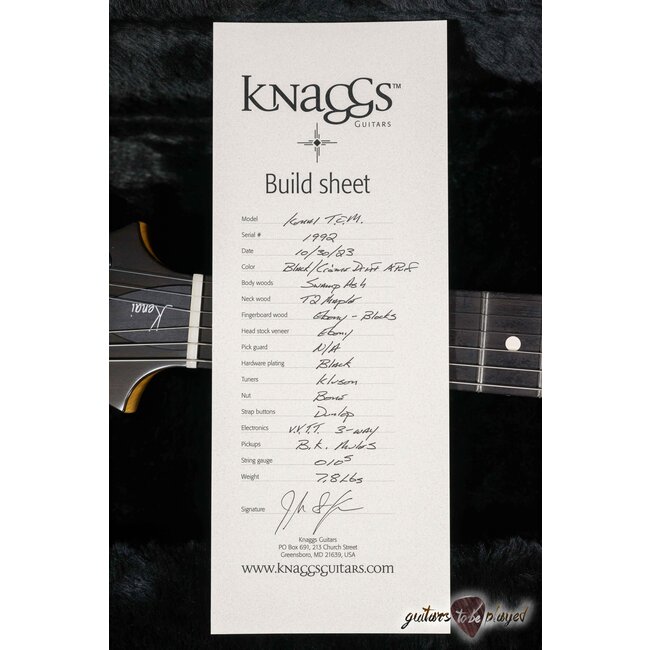 KNAGGS™
GUITARS
Build sheet
Model Kenai T.C.M.
Serial # 1992
Date 10/30/23
Color Black/Creme
Body woods Swamp Ash
Neck wood T2 Maple
Fingerboard wood Ebony - Blocks
Head stock veneer Ebony
Pick guard N/A
Hardware plating Black
Tuners Kluson
Nut Bone
Strap buttons Dunlop
Electronics V.V.T.T. 3-way
Pickups B.K. Mules
String gauge 010s
Weight 7.8 Lbs
Signature
Knaggs Guitars
PO Box 691, 213 Church Street
Greensboro, MD 21639, USA
www.knaggsguitars.com
Kenai
guitars to be played